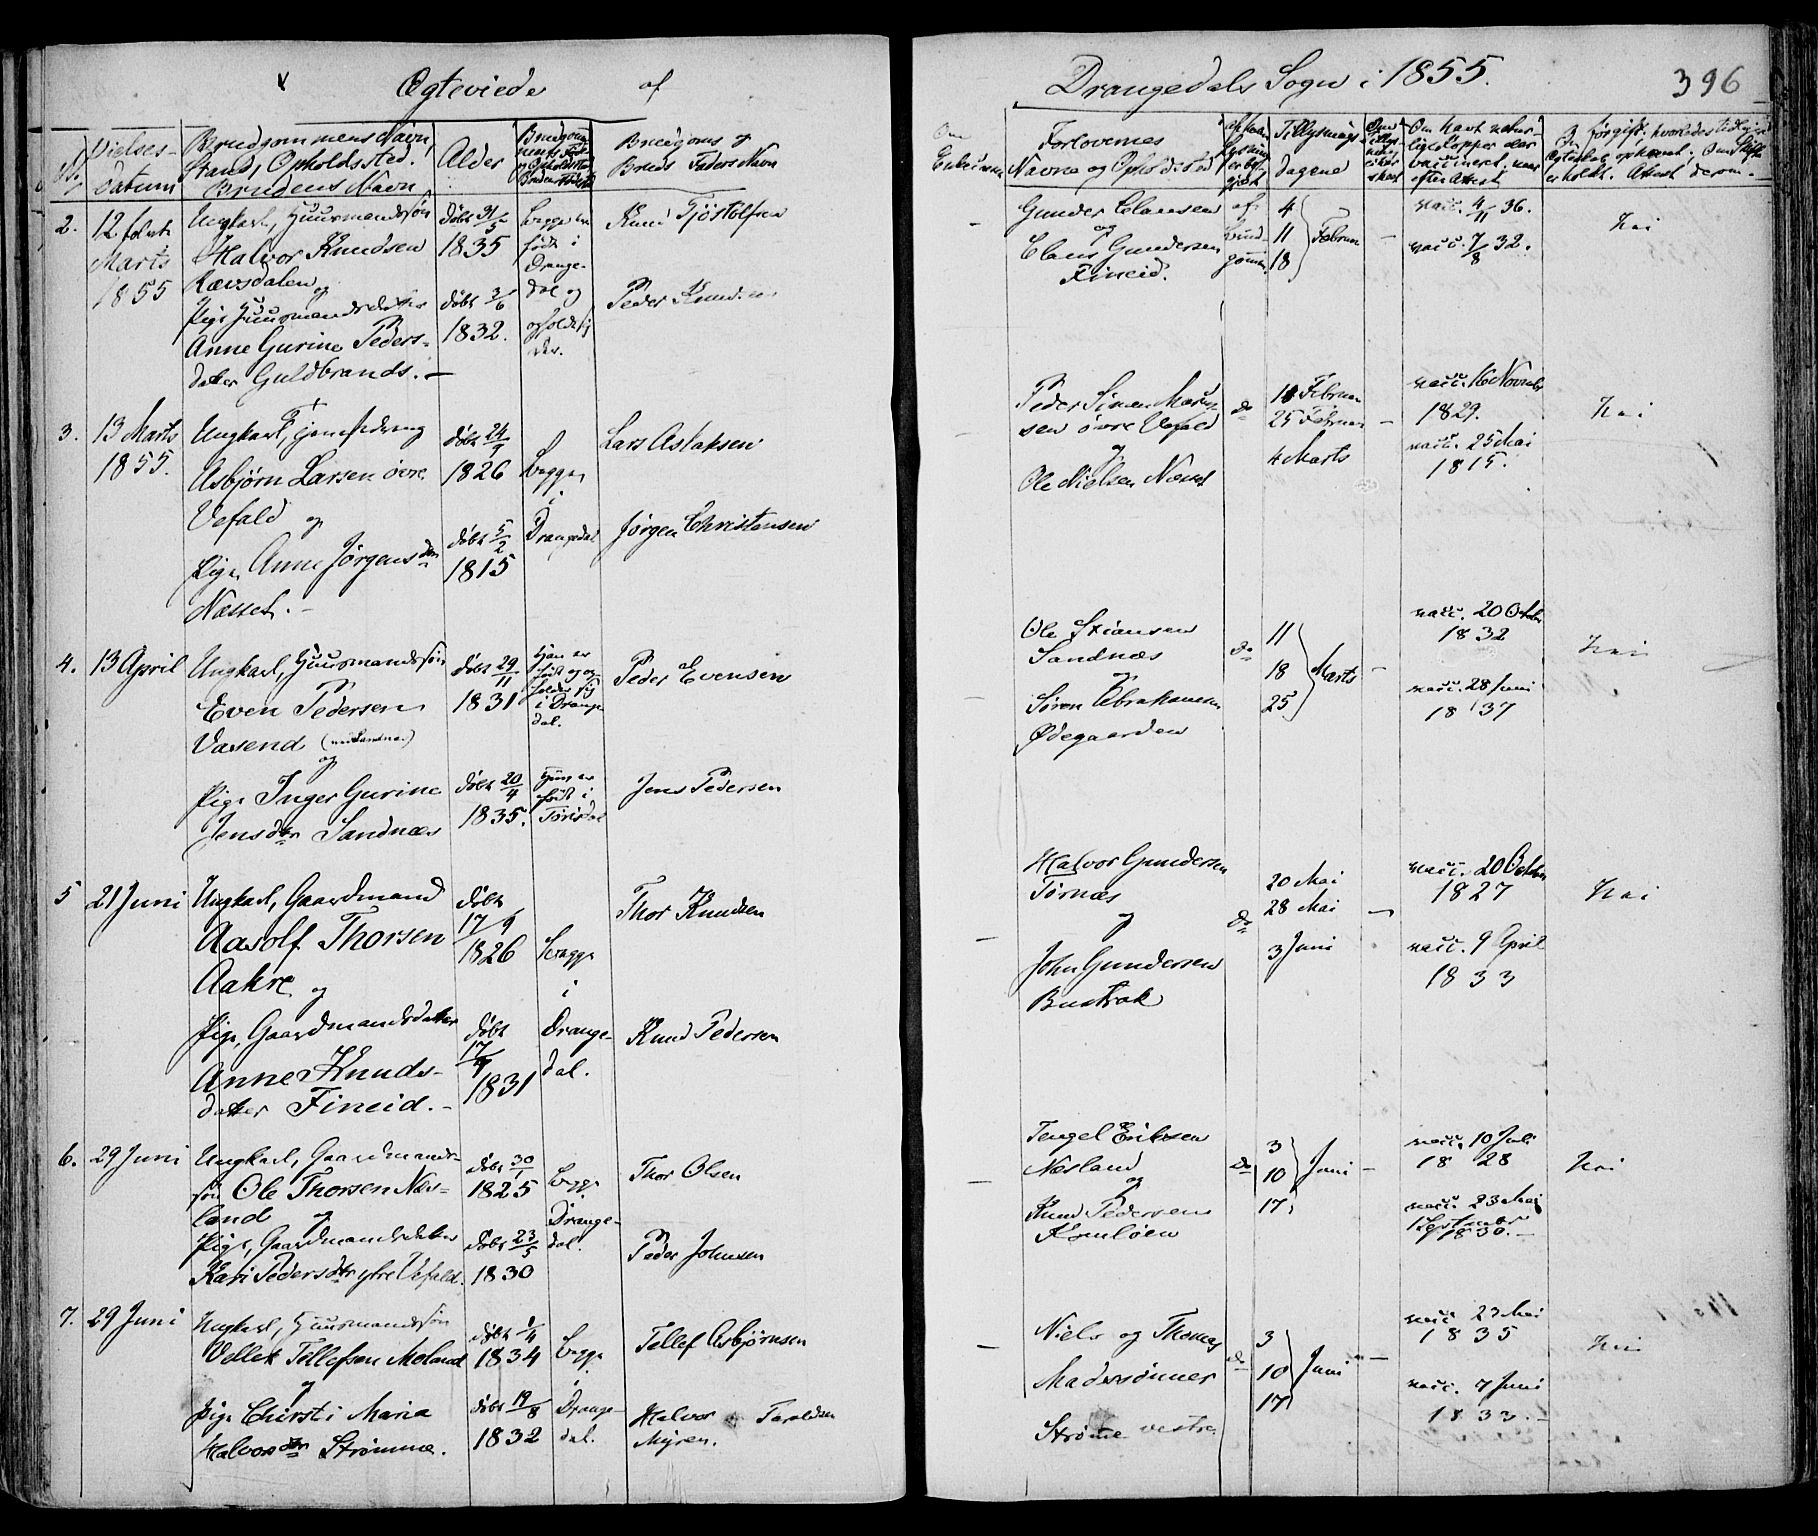 Ægteviede af Drangedals Sogn i 1855. 396
No
Vielses-
Datum
Brudgommens Navn,
Stand, Opholdssted.
Brudens Navn
Alder
Brudgoms og
Bruds Faders Navn
Om
Enkemand
Forlovernes
Navne og Opholdssted
Tillysnings
dagene
Om havt natur-
lige Kopper eller
vaccineret, naar
efter Attest
2.
12 
Marts
1855
Ungkarl, Huusmandssøn
Halvor Knudsen
Rævsdalen
og
Pige Huusmandsdatter
Anne Gurine Peders-
datter Guldbrands. —
døbt 31/5
1835
døbt 3/6
1832.
Begge ere
født i
Drange-
dal og
opholde sig
der.
Knud Tjostolfsen
Peder Knudsen
—
Gunder Clausen
og
Claus Gundersen
Fineid.
af
Brud-
gommen
4
11
18
Februar
—
vacc. 4/11 36.
vacc. 7/8 32.
Nei
3.
13 Marts
1855.
Ungkarl, Tjenestedreng
Asbjørn Larsen øvre
Vefald og
Pige Anne Jørgensdtr
Næsset. —
døbt 24/9
1826
døbt 5/2
1815
Begge
i
Drangedal
Lars Aslaksen
Jørgen Christensen
—
Peder Simen
sen øvre Vefald
og
Ole Nielsen Næsset
do
18 Februar
25 Februar
4 Marts
—
vacc. 16 Novembr
1829.
vacc. 25 Mai
1815.
Nei
4.
13 April
Ungkarl, Huusmandssøn
Even Pedersen
Vasend
og
Pige Inger Gurine
Jensdtr Sandnæs
døbt 29/11
1831
døbt 20/4
1835.
Han er
født og op-
holder sig
i Drange-
dal.
Hun er
født i
Tørisdal
Peder Evensen
Jens Pedersen
Ole Stiansen
Sandnæs
og
Søren Abrahamsen
Ødegaarden
do
11
18
25
Marts
—
vacc. 20 Octobr
1832
vacc. 28 Juni
1837
Nei
5
21 Juni
Ungkarl, Gaardmand
Aasolf Thorsen
Aakre og
Pige, Gaardmandsdatter
Anne Knuds-
datter Fineid. —
døbt
17/9
1826
døbt
17/9
1831
Begge
i
Drange-
dal.
Thor Knudsen
Knud Pedersen
—
Halvor Gundersen
Tørnæs
og
John Gundersen
Bustrak
do
20 Mai
28 Mai
3 Juni
—
vacc. 20 Octobr
1827
vacc. 9 April
1833
Nei
6.
29 Juni
Ungkarl, Gaardmands-
søn Ole Thorsen Næs-
land og
Pige, Gaardmandsdatter
Kari Pedersdtr ytre Vefald.
døbt 30/1
1825
døbt 23/5
1830
Begge
Drange-
dal.
Thor Olsen
Peder Johnsen
Tengel Eriksen
Næsland
og
Knud Pedersen
do
3
10
17
Juni
—
vacc. 10 Juli
1828
vacc. 23
1830. —
Nei
7.
29 Juni
Ungkarl, Huusmandssøn
Vellek Tellefsen Moland
og
Pige Chirsti Maria
Halvorsdtr Strømme.
døbt 1/4
1834
døbt 19/8
1832
Begge
i
Drange-
dal.
Tellef Asbjørnsen
Halvor Taraldsen
Myren.
—
Niels og Thomas
Madssønner
Strømme vestre
do
3
10
17
Juni
—
vacc. 23 Mai
1835
vacc. 7 Juni
1833. —
Nei